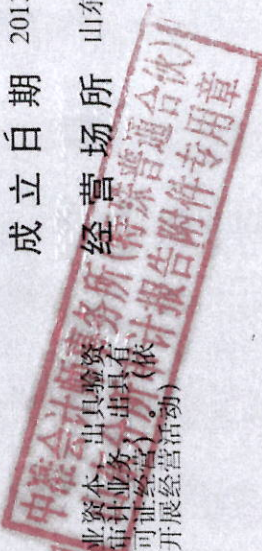 成立日期 201
经营场所 山东
业资本,出具验资
审计业务,出具有
可证经营)。(依
开展经营活动)
中准会计师事务所(特殊普通合伙)
分所审计报告附件专用章